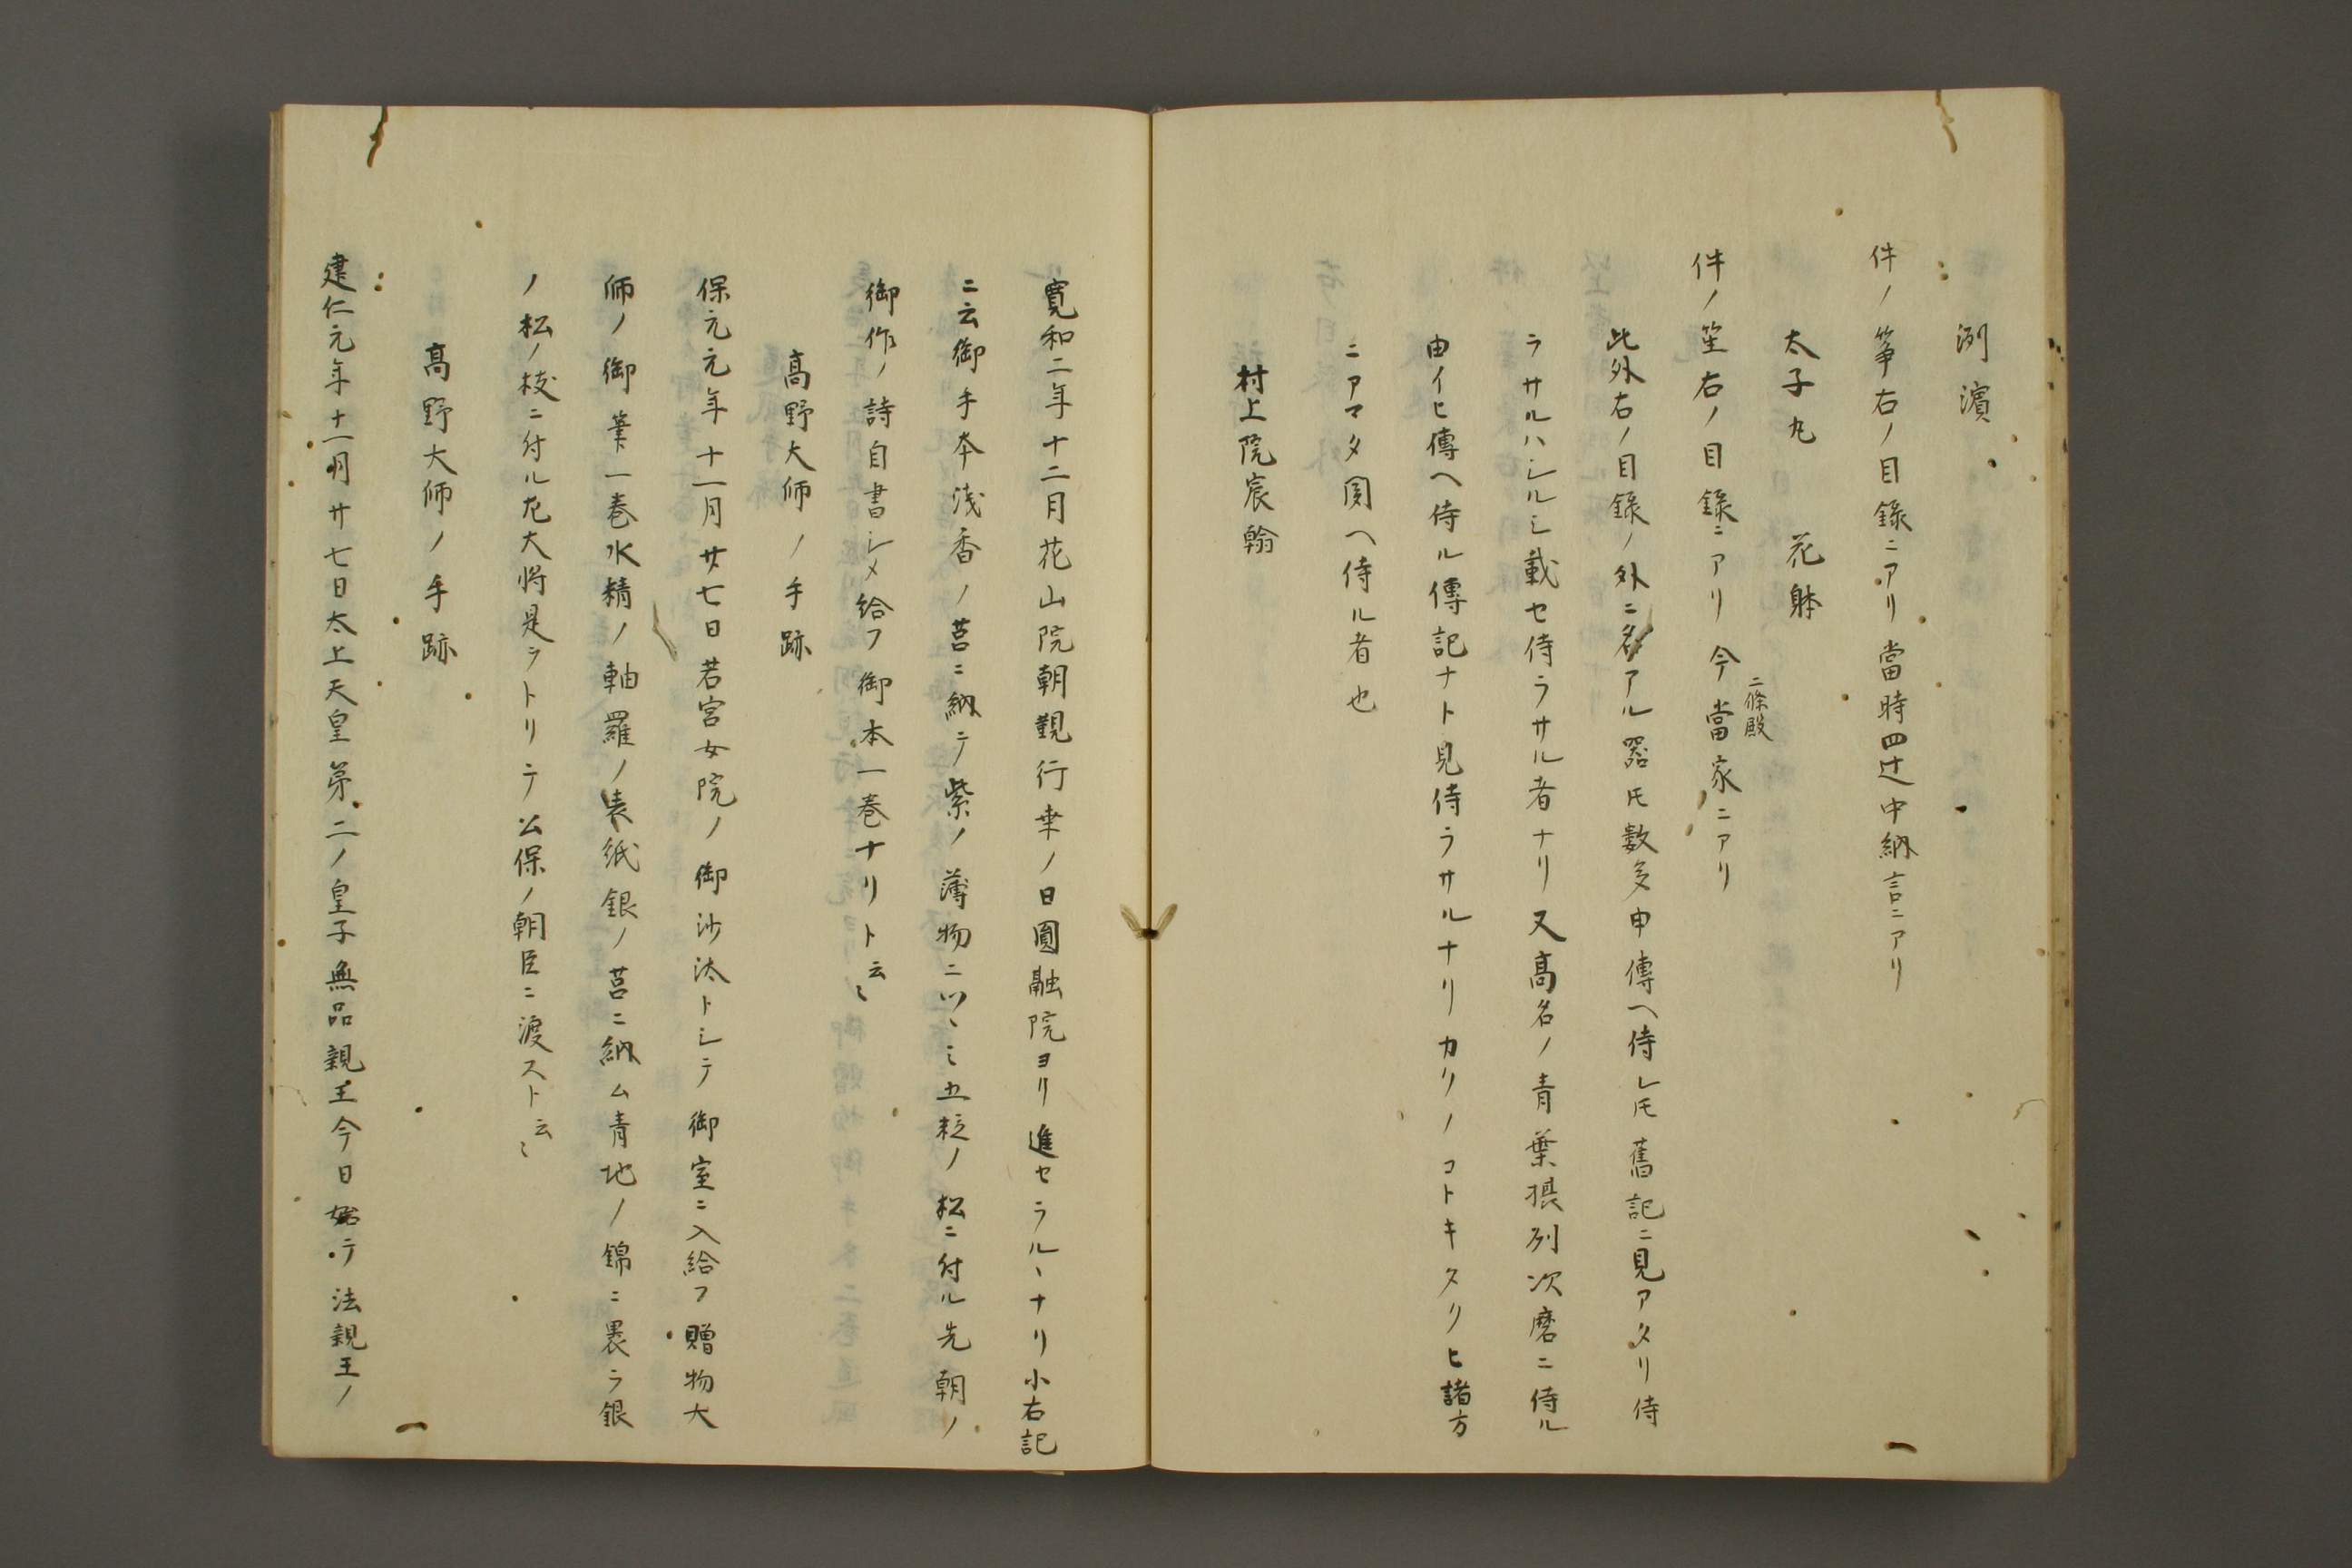 洌濱
件ノ箏右ノ目錄ニアリ當時四辻中納言ニアリ
太子丸　花躰
件ノ笙右ノ目錄ニアリ今當家ニアリ
二條殿
此外右ノ目錄ノ外ニ名アル器𪜈数多申傳ヘ侍レ𪜈舊記ニ見アタリ侍
ラサルハシルシ載セ侍ラサル者ナリ又髙名ノ青葉摂州次磨ニ侍ル
由イヒ傳ヘ侍ル傳記ナト見侍ラサルナリカリノコトキタクヒ諸方
ニアマタ聞ヘ侍ル者也
村上院宸翰
寛和二年十二月花山院朝覲行幸ノ日圓融院ヨリ進セラルヽナリ小右記
ニ云御手本浅香ノ莒ニ納テ紫ノ薄物ニツヽミ五粒ノ松ニ付ル先朝ノ
御作ノ詩自書シメ給フ御本一巻ナリト云〻
髙野大師ノ手跡
保元元年十一月廿七日若宮女院ノ御沙汰トシテ御室ニ入給フ贈物大
師ノ御筆一巻水精ノ軸羅ノ表紙銀ノ莒ニ納ム青地ノ錦ニ裹ラ銀
ノ松ノ枝ニ付ル左大将是ヲトリテ公保ノ朝臣ニ渡ストス云〻
髙野大師ノ手跡
建仁元年十一月廿七日太上天皇第二ノ皇子無品親王今日始テ法親王ノ